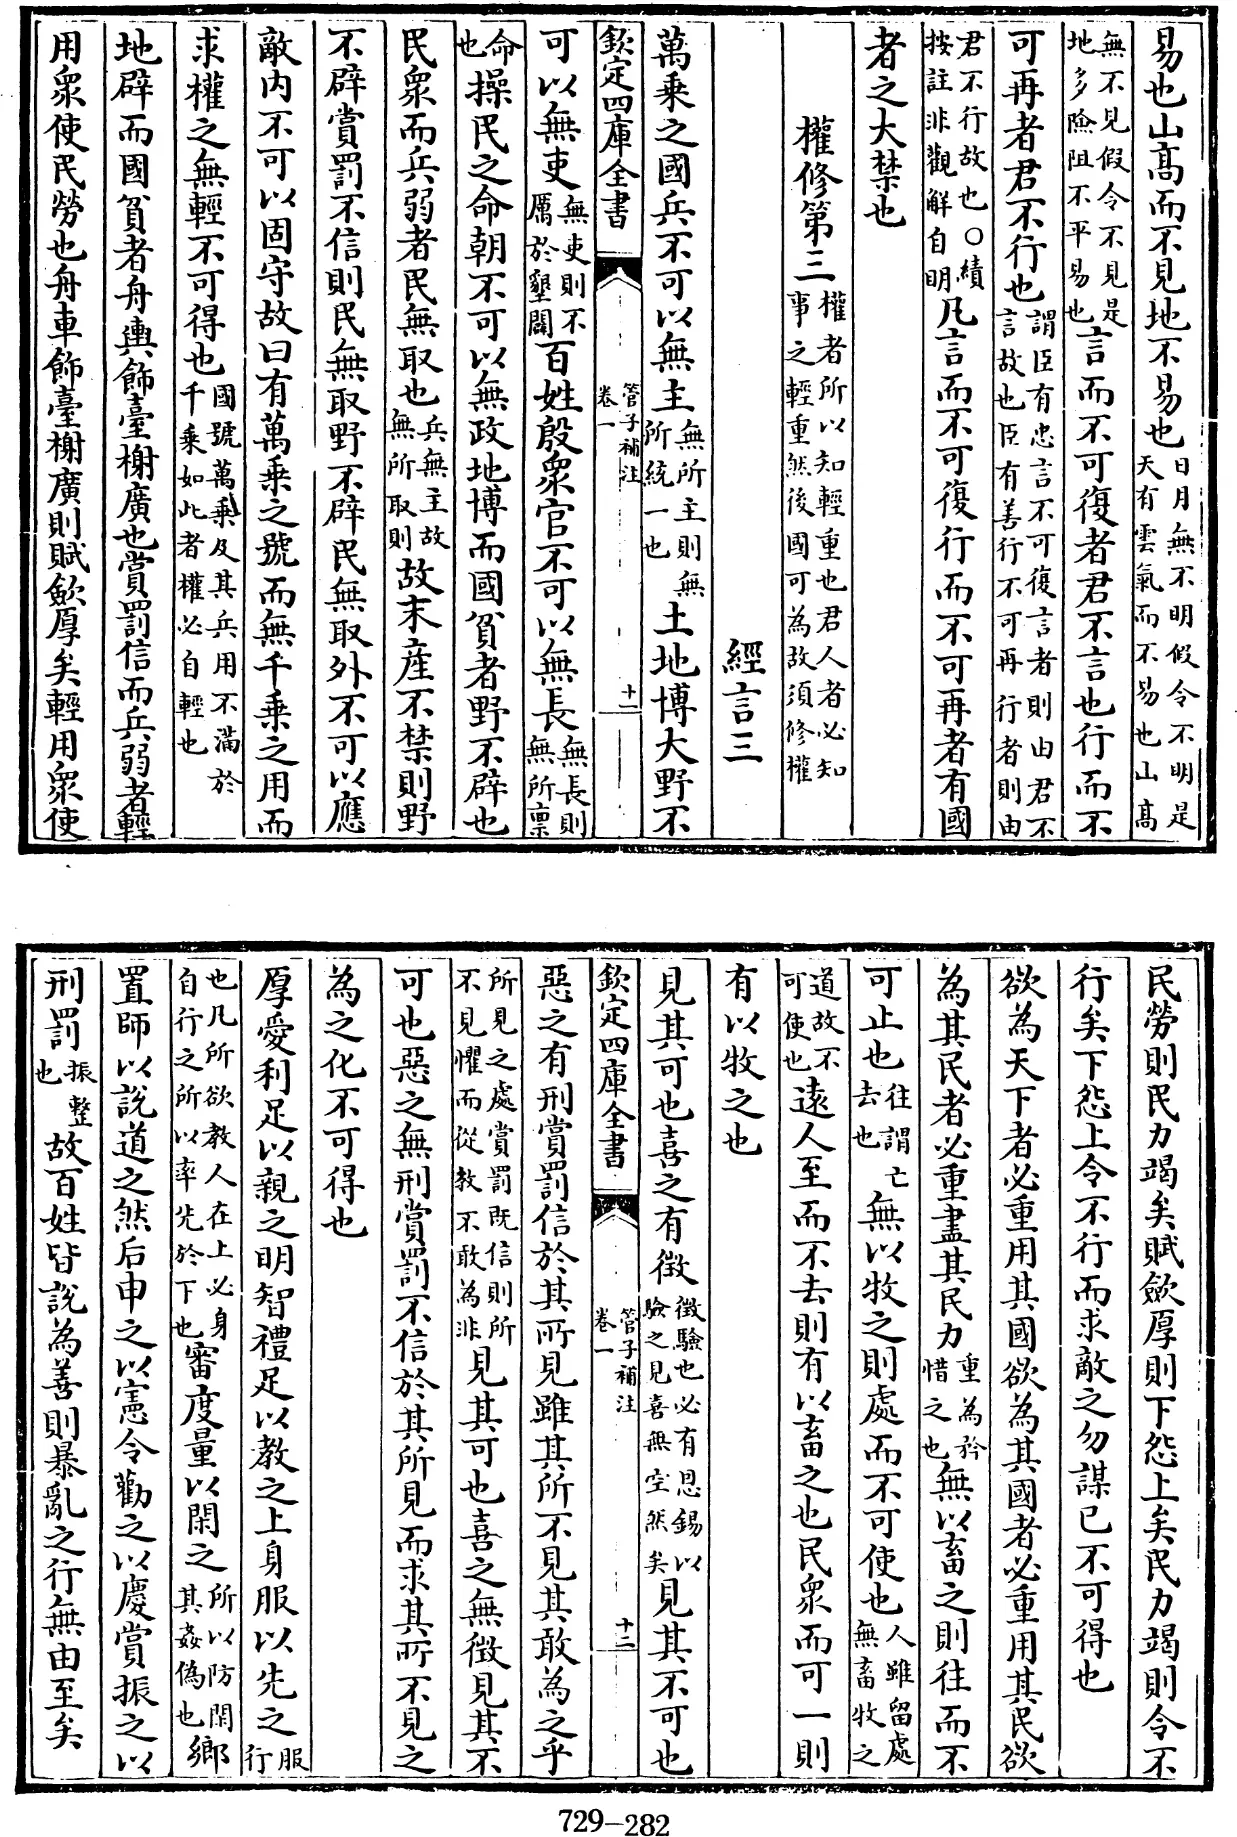 易也山髙而不見地不易也日月無不明假令不明是天有雲氣而不易也山髙
無不見假令不見是地多險阻不平易也言而不可復者君不言也行而不
可再者君不行也謂臣有忠言不可復言者則由君不言故也臣有善行不可再行者則由
君不行故也○績按註非觀解自明凡言而不可復行而不可再者有國
者之大禁也
權修第三權者所以知輕重也君人者必知事之輕重然後國可為故須修權
經言三
萬乗之國兵不可以無主無所主則無所統一也土地博大野不
欽定四庫全書
管子補注
卷一
十一
可以無吏無吏則不厲於墾闢百姓殷衆官不可以無長無長則無所禀
命也操民之命朝不可以無政地博而國貧者野不辟也
民衆而兵弱者民無取也兵無主故無所取則故末産不禁則野
不辟賞罰不信則民無取野不辟民無取外不可以應
敵内不可以固守故曰有萬乗之號而無千乗之用而
求權之無輕不可得也國號萬乗及其兵用不滿於千乗如此者權必自輕也
地辟而國貧者舟輿飾臺榭廣也賞罰信而兵弱者輕
用衆使民勞也舟車飾臺榭廣則賦斂厚矣輕用衆使
民勞則民力竭矣賦斂厚則下怨上矣民力竭則令不
行矣下怨上令不行而求敵之勿謀已不可得也
欲為天下者必重用其國欲為其國者必重用其民欲
為其民者必重盡其民力重為矜惜之也無以畜之則往而不
可止也往謂亡去也無以牧之則處而不可使也人雖留處無畜牧之
道故不可使也逺人至而不去則有以畜之也民衆而可一則
有以牧之也
見其可也喜之有徴徴驗也必有恩錫以驗之見喜無空然矣見其不可也
欽定四庫全書
管子補注
卷一
十二
惡之有刑賞罰信於其所見雖其所不見其敢為之乎
所見之處賞罰既信則所不見懼而從教不敢為非見其可也喜之無徴見其不
可也惡之無刑賞罰不信於其所見而求其所不見之
為之化不可得也
厚愛利足以親之明智禮足以教之上身服以先之服行
也凡所欲教人在上必身自行之所以率先於下也審度量以閑之所以防閑其姦偽也鄉
置師以説道之然后申之以憲令勸之以慶賞振之以
刑罰振整也故百姓皆説為善則暴亂之行無由至矣
729-282